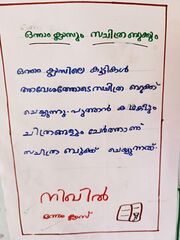 ഒന്നാം ക്ലാസും സചിത്രബുക്കും
ഒന്നാം ക്ലാസിലെ കുട്ടികൾ
ആവേശത്തോടെ സചിത്ര ബുക്ക്
ചെയ്യുന്നു. പുത്തൻ കഥകളും
ചിത്രങ്ങളും ചേർത്താണ്
സചിത്ര ബുക്ക് ചെയ്യുന്നത്.
നിഖിൽ
ഒന്നാം ക്ലാസ്